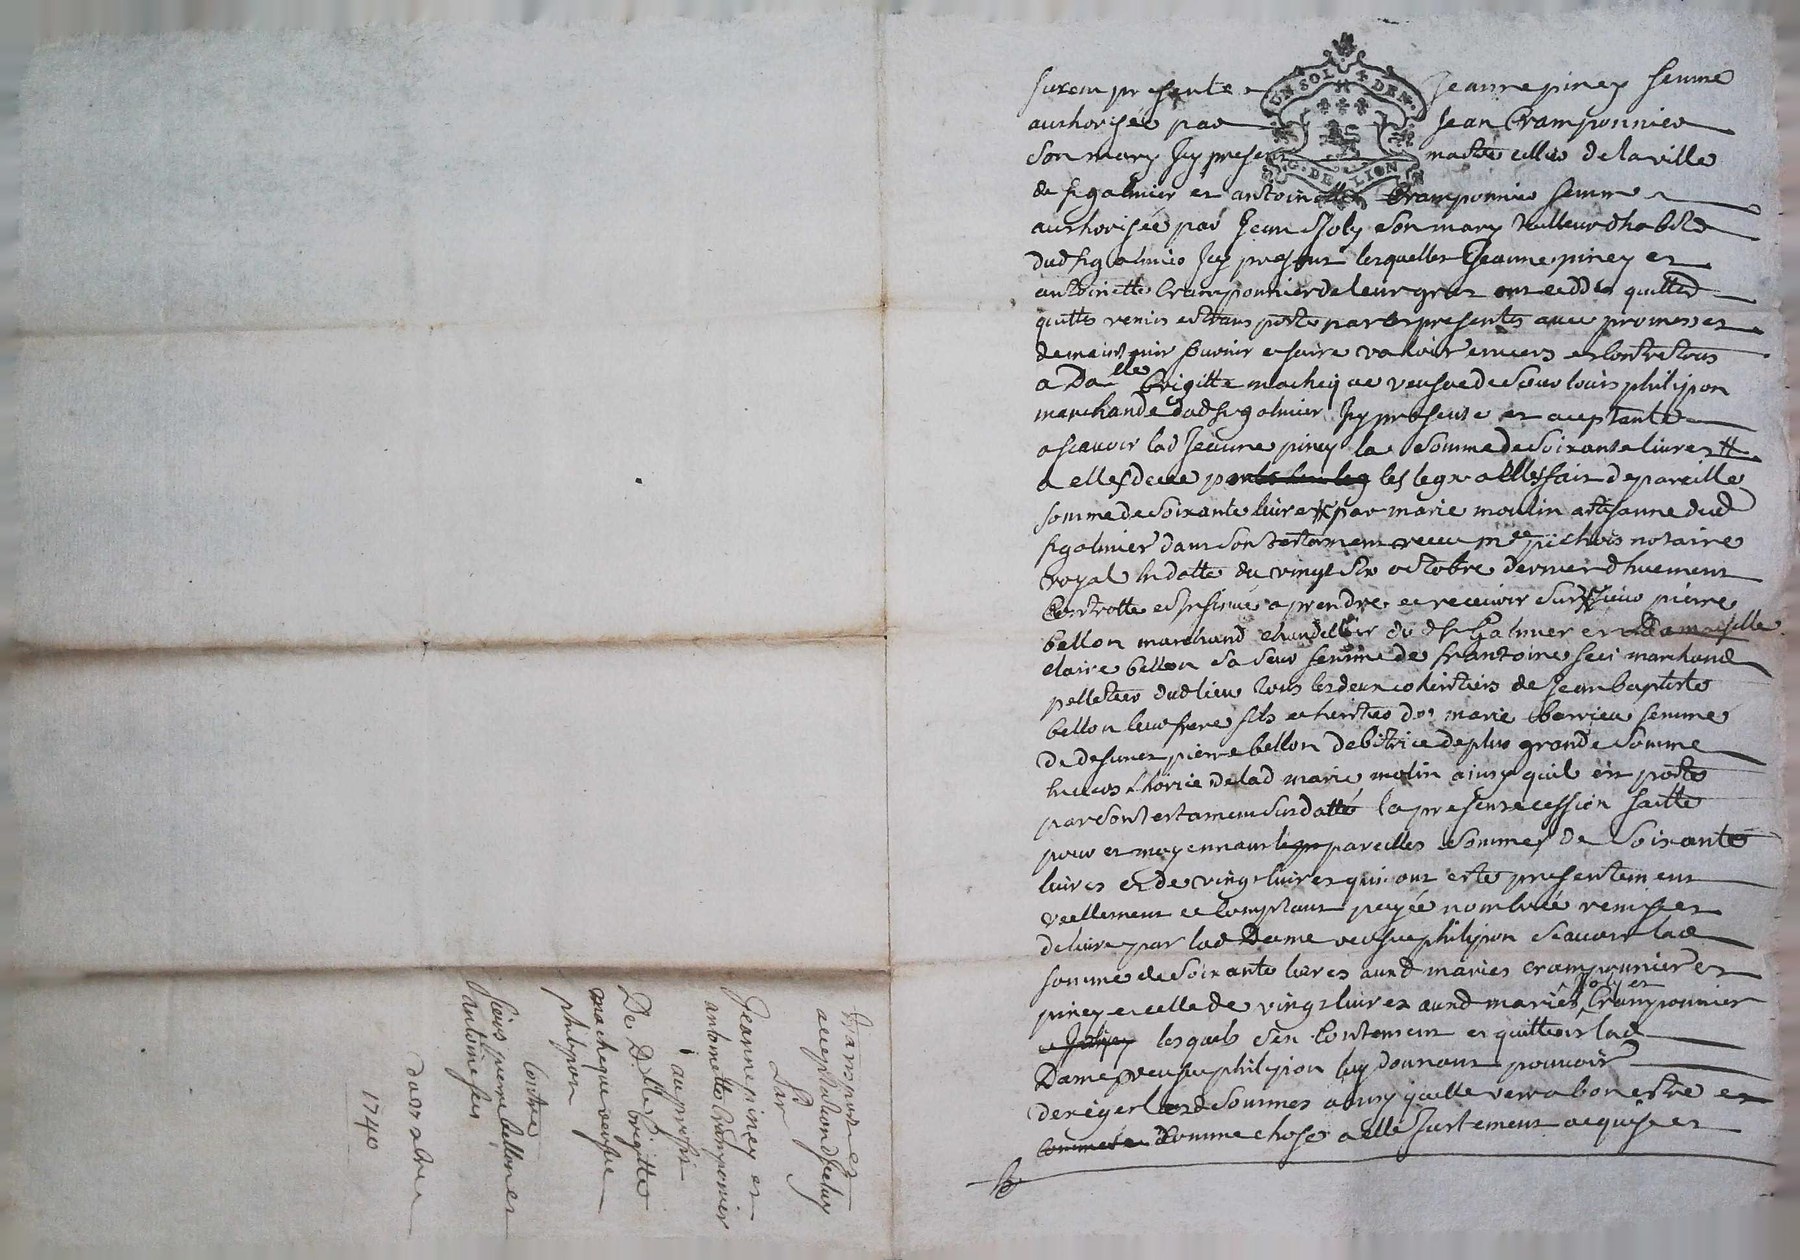 furent presente Jeanne piney femme
authorisée par Jean Cramponnier
Son mary Icy present de la ville
UN SOL 4 DEN.
G. DE LION
de st galmier et antoinette Cramponnier femme
authorisée par Jean Joly Son mary tailleur d'habits
dud st galmier Icy present lesquelles Jeanne piney et
antoinette Cramponnier de leur gres ont ceddé quitté
quitte remis et transporte par ces presentes avec promesses
de maintenir fournir et faire valoir envers et contre tous
a Dalle Brigitte macheque veufve de Sieur louis philippon
marchande dud st galmier Icy presente et aceptante
a scavoir lad Jeanne piney la Somme de Soixante livres
a elle deue les legx a elle fait de pareille
somme de Soixante livres par marie moulin artisanne dud
st galmier dans Son testament receu me pichois notaire
royal en datte du vingt Six octobre dernier dhuement
Controllé et Insinué a prendre et recevoir Sur Sieur pierre
bellon marchand chandellier du d St Galmier et Damoiselle
claire bellon Sa Seur femme de Sr antoine feis marchand
pelletier dud lieu tous les deux cohéritiers de Jean baptiste
bellon leur frere fils et heritier de marie barrieu femme
de defunct pierre bellon debitrice de plus grande Somme
envers lhoirie de lad marie molin ainsy quil est porté
par Son testament Susdatté la presente cession faitte
pour et moyennant pareilles Sommes de Soixante
livres et de vingt livres qui ont esté presentement
reellement et Comptant payée nombrée remise et
delivre par lad Dame veufve philippon Scavoir lad
somme de Soixante livres auxd mariés cramponnier et
piney et celle de vingt livres auxd mariés Joly et Cramponnier
lesquels Sen Contentent et quittent lad
Dame veufve philippon luy donnant pouvoir
dexiger lesd Sommes ainsy quelle verra bon estre et
Comme chose a elle Justement acquise et
transport et
aceptation dicelluy
Par
Jeanne piney et
antoinette Cramponier
au proffit
De Dlle brigitte
macheque veufve
philippon
Contre
Srs pierre bellon et
antoine feis
du 27 xbre
1740